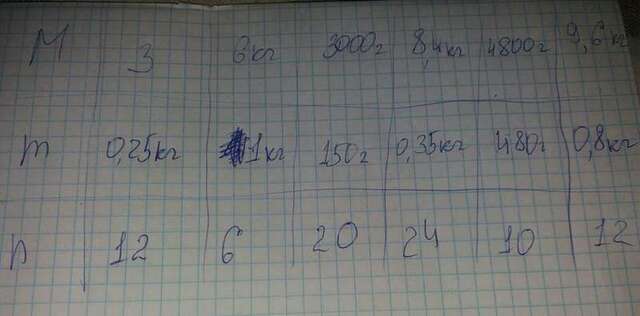 M 3 6кг 3000г 8,4кг 4800г 9,6кг
m 0,25кг 1кг 150г 0,35кг 480г 0,8кг
n 12 6 20 24 10 12